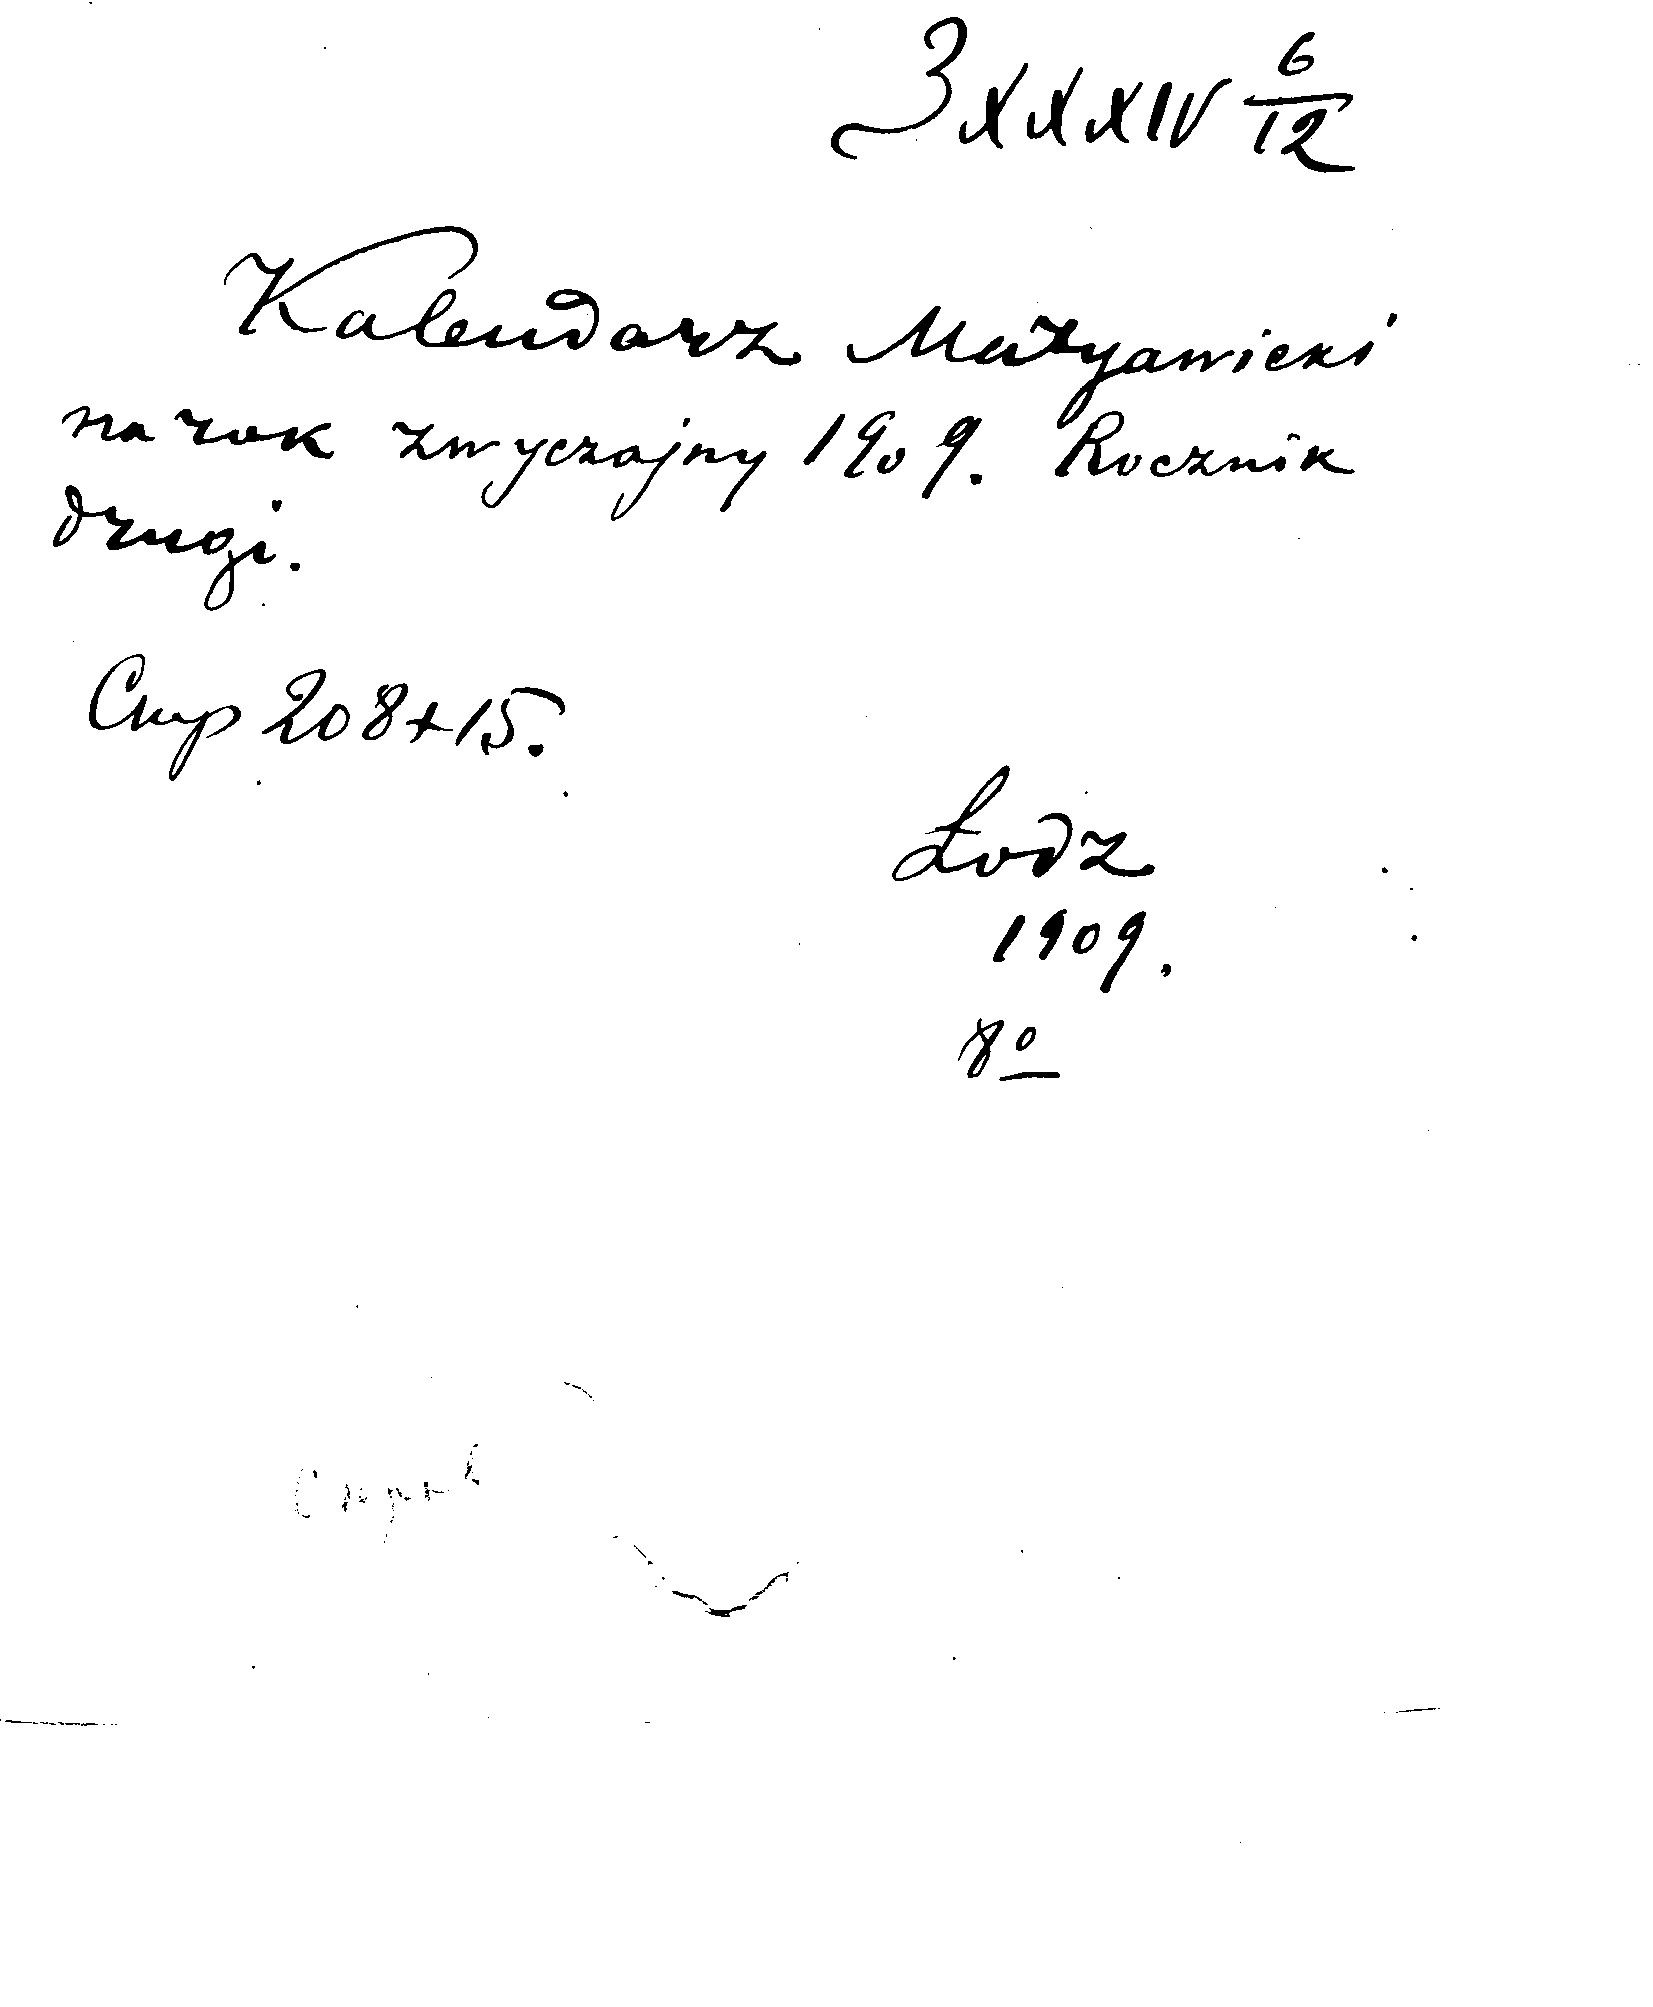 З XXXIV 6/12
Kalendarz Maryawicki
na rok zwyczajny 1909. Rocznik
drugi.
Стр 208+15.
Łodz
1909.
8º